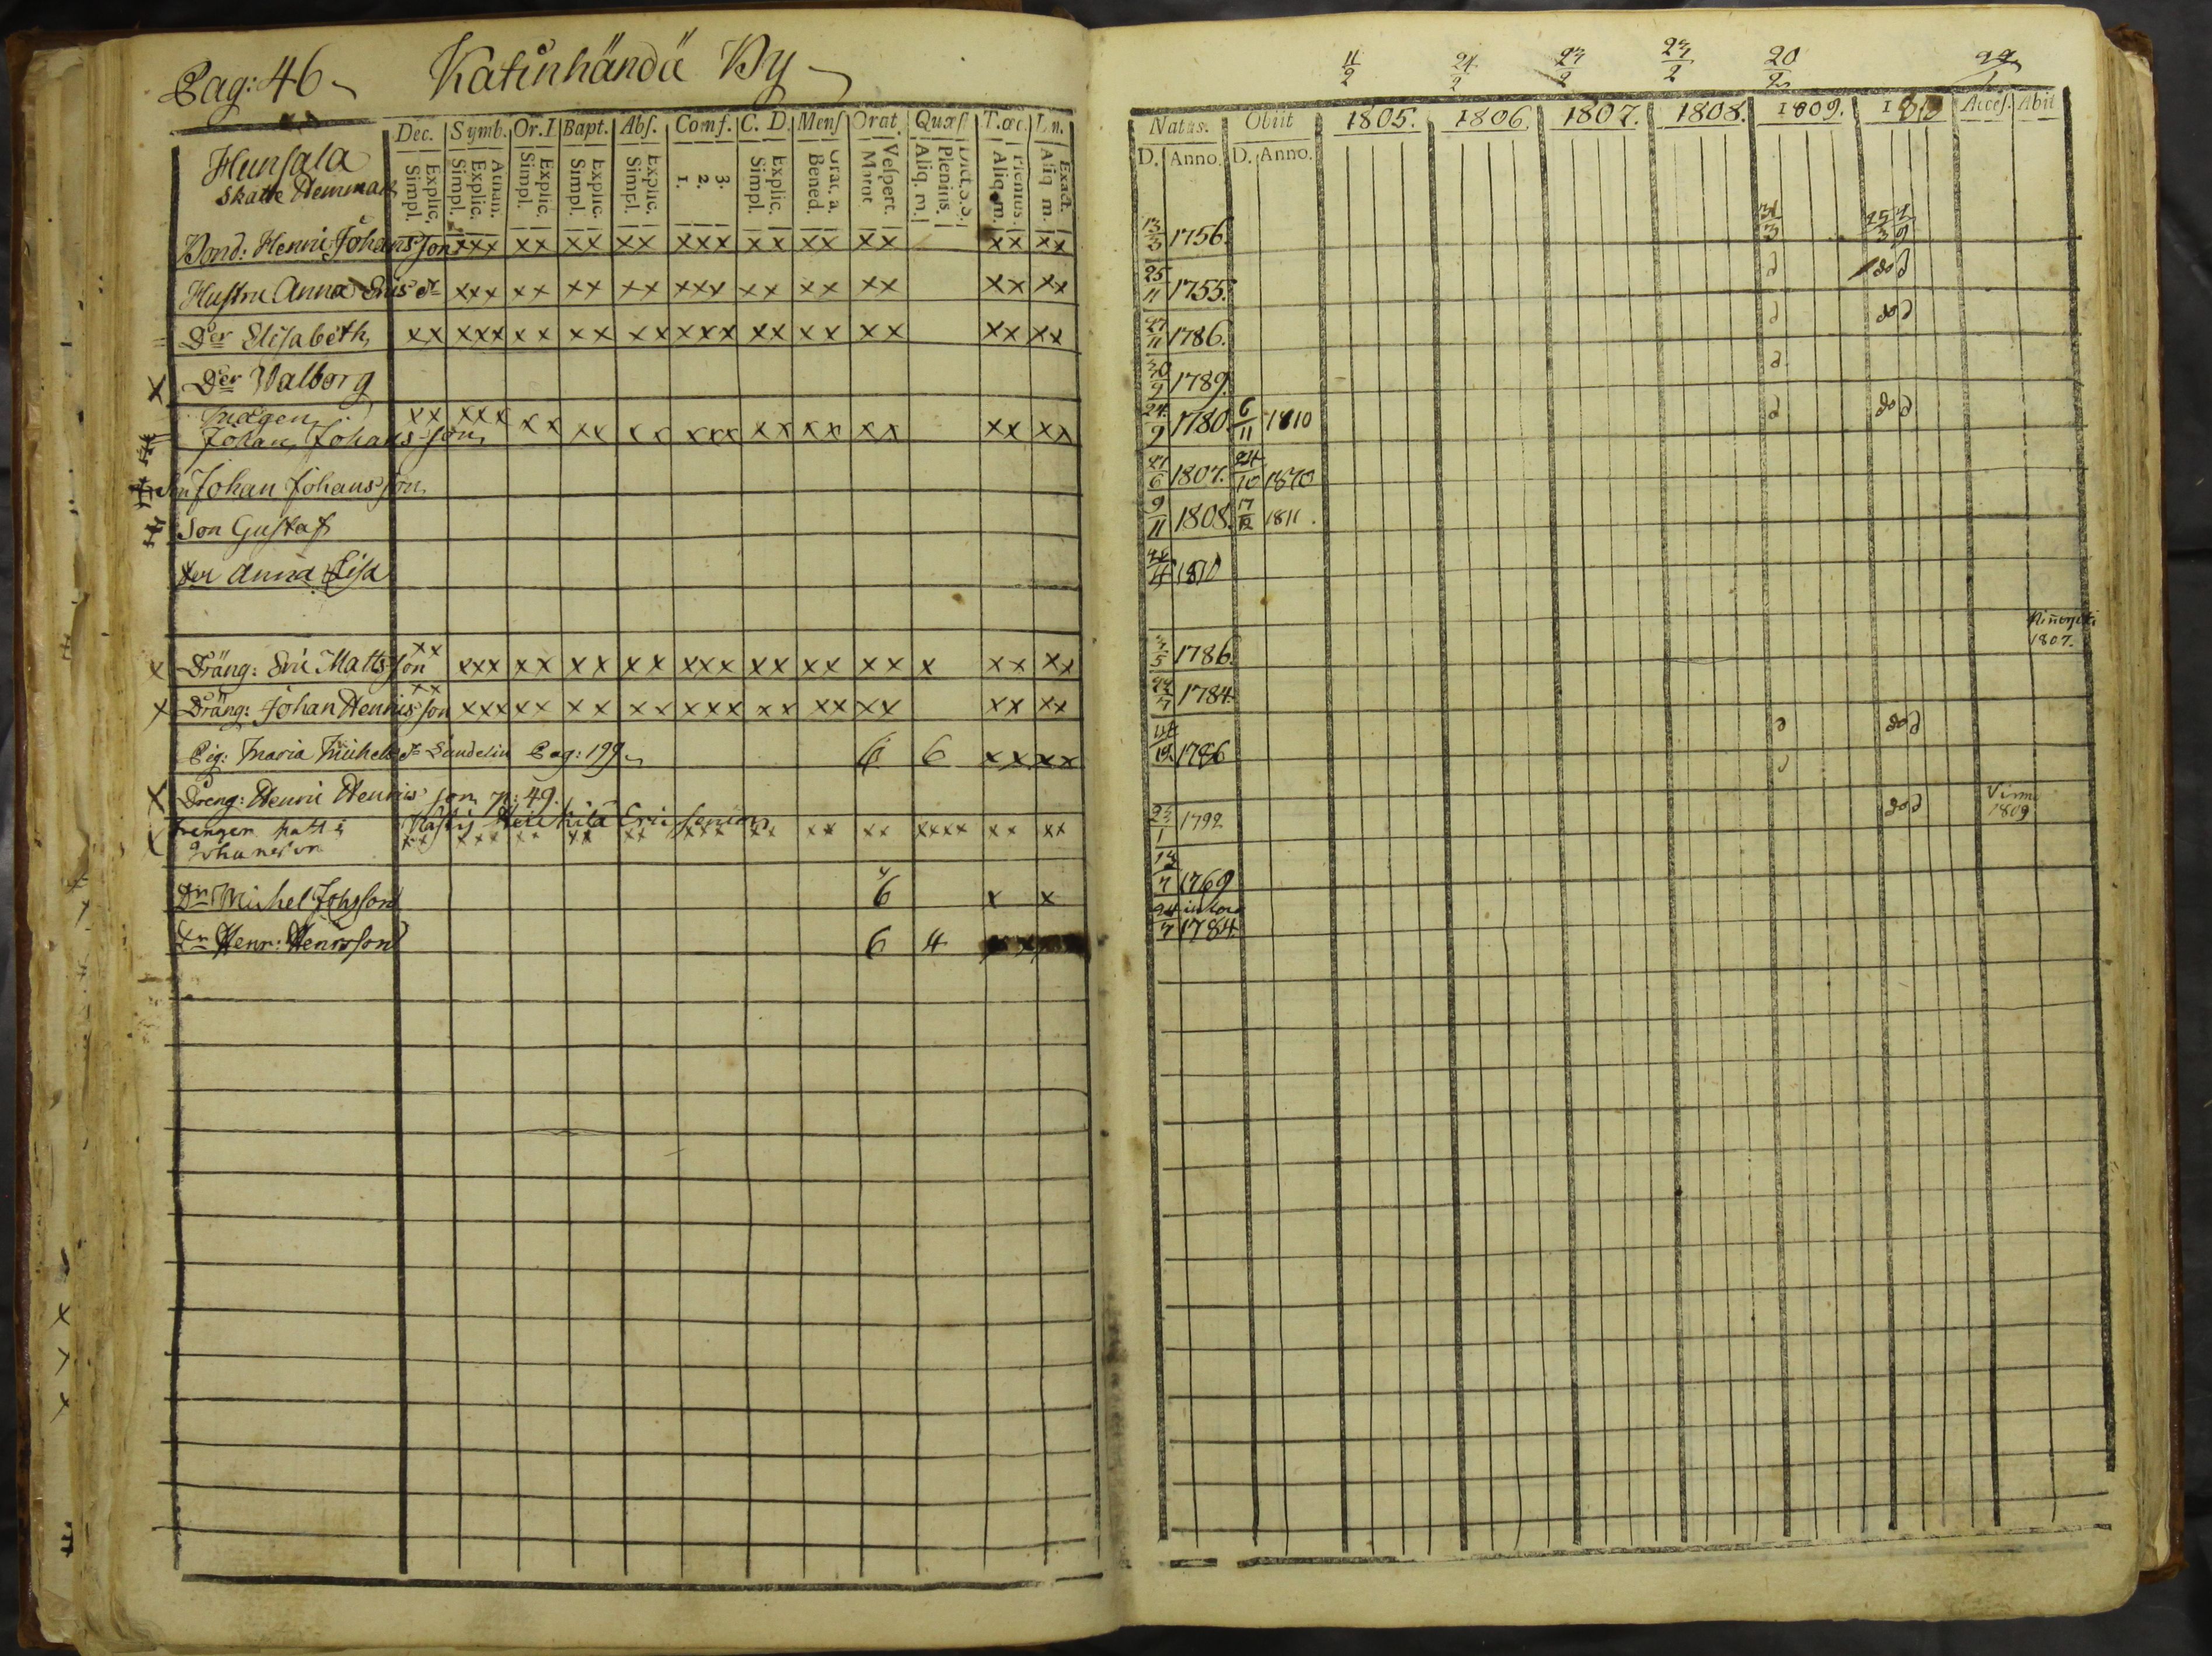 Pag: 46
Katinhändä By
Dec. Symb. Or. I Bapt. Abſ. Comſ. C. D. Menſ Orat. Quæſt T. œc. Ln.
Explic. Simpl. Athan. Explic. Simpl. Explic. Simpl. Explic. Simpl. Explic. Simpl. 3. 2. 1. Explic. Simpl. Grat. a. Bened. Veſpert. Matut Dict. S. S. Plenius. Aliq. m. Plenius. Aliq. m. Exact. Aliq m.
Hunſala
Skatte Hemman
Bond: Henric Johans ſon xxx xx xx xx xxx xx xx xx xx xx
Huſtru Anna Erics dr xxx xx xx xx xxx xx xx xx xx xx
Der Eliſabeth xx xxx xx xx xx xxx xx xx xx xx xx
x Der Walborg
Mågen xx xxx
Johan Johans ſon xx xx xx xxx xx xx xx xx xx
Johan Johans ſon
Son Guſtaf
Der Anna Liſa
x Dräng: Eric Matts ſon xx xxx xx xx xx xxx xx xx xx x xx xx
x Dräng: Johan Henrics ſon xx xxx xx xx xx xxx xx xx xx xx xx
Pig: Maria Michels dr Sundelin Pag: 199 6 6 xx xx
x Dreng: Henric Henrics ſon p: 49.
Drengen Matts
Johansson xx xxx xx xx xx xxx xx xx xx xxxx xx xx
Dn Michel Johsſon 6 x x
Dn Henr: Henrsſon 6 4
11/2 24/2 23/2 23/2 20/2
Natus. Obiit 1805. 1806. 1807. 1808. 1809. 1810 Acceſ. Abit
D. Anno. D. Anno.
13/3 1756
25/11 1755. do
27/11 1786. do
30/9 1789.
24/9 1780 6/11 1810 do
27/6 1807. 24/10 1810
9/11 1808. 17/12 1811.
4 1810
1807.
5 1786.
7 1784.
1786 do
1792 do 1809
7 1769
24/7 1784